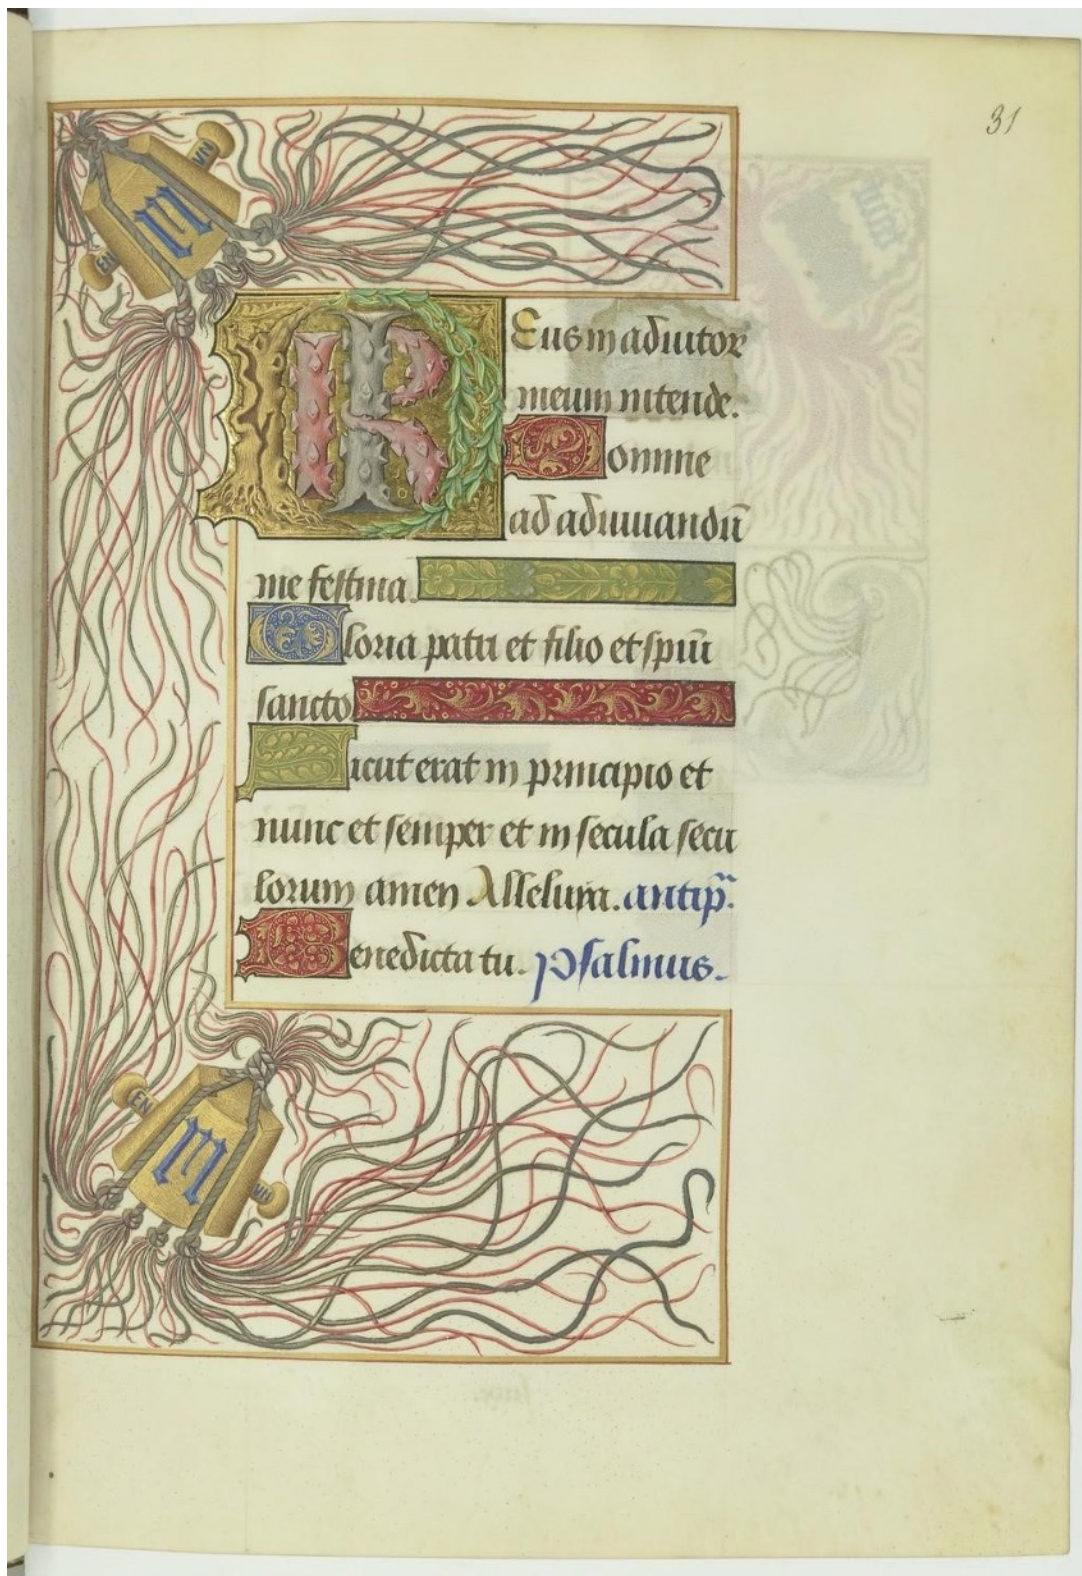 31
VN
m
EN
IK
Eus in adiutor
meum intende.
Domine
ad adiuuandū
me festina.
Gloria patri et filio et spūi
sancto
Sicut erat in principio et
nunc et semper et in secula secu
lorum amen Alleluya. antip̄.
Benedicta tu. psalmus.
EN
m
VN